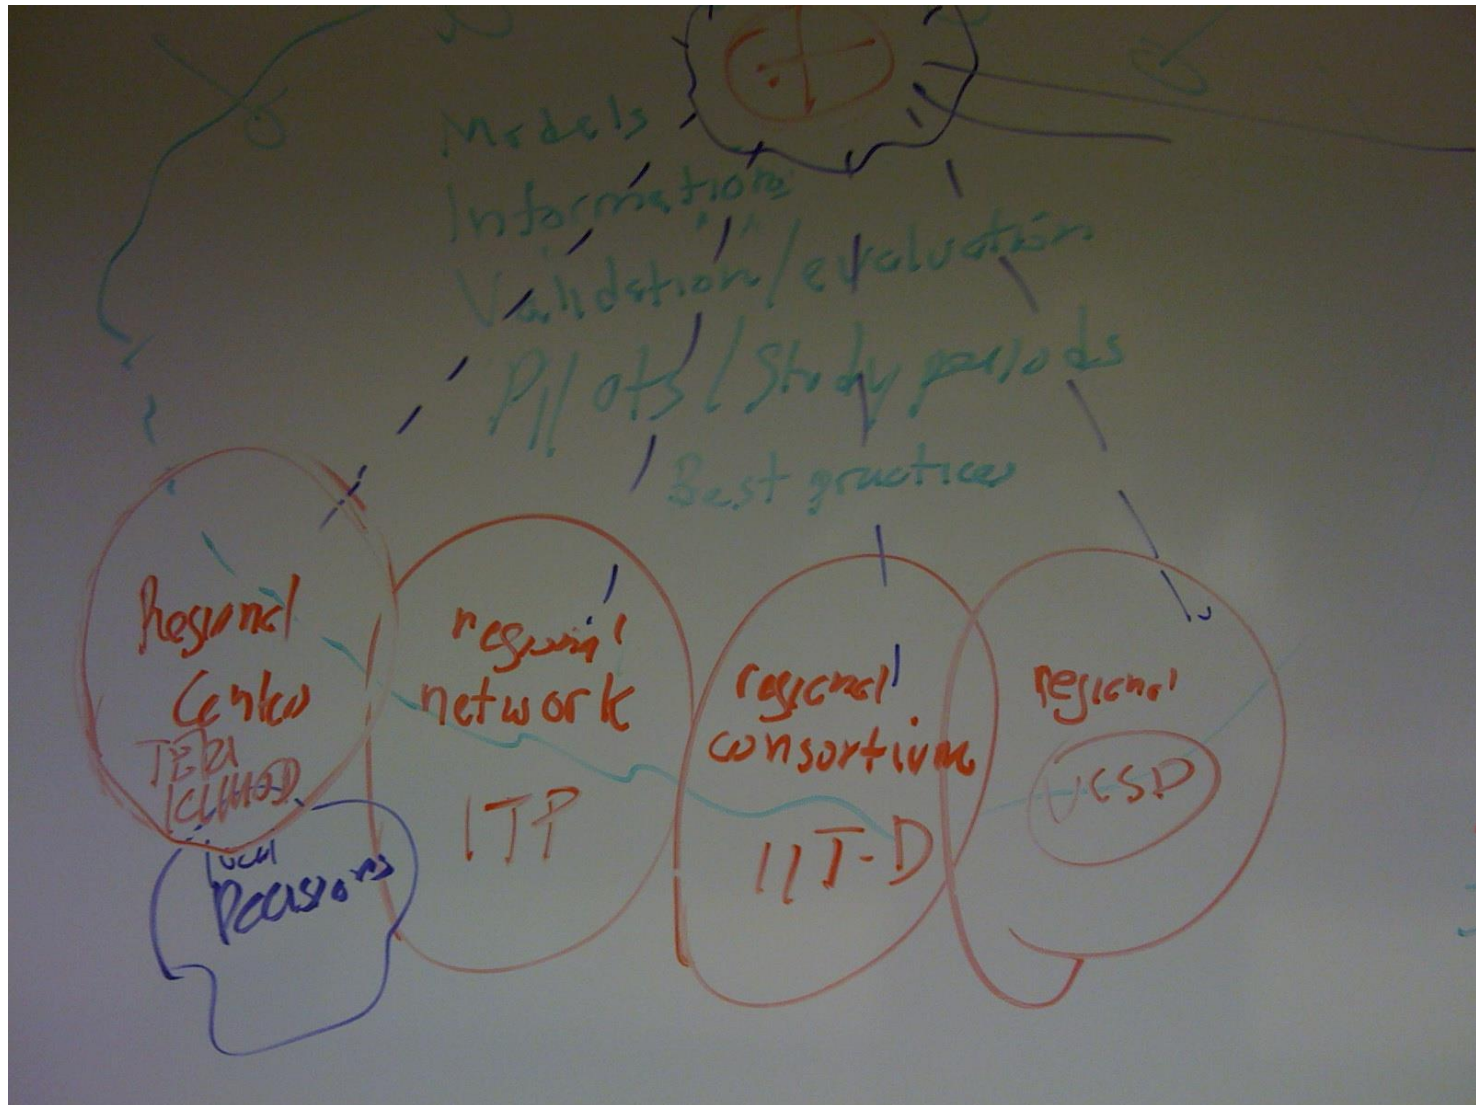 Models
Information
Validation/evaluation
Pilots/Study periods
Best practices
Regional
Center
TERI
ICIMOD
local
Decisions
regional
network
ITP
regional
consortium
IIT-D
regional
UCSD